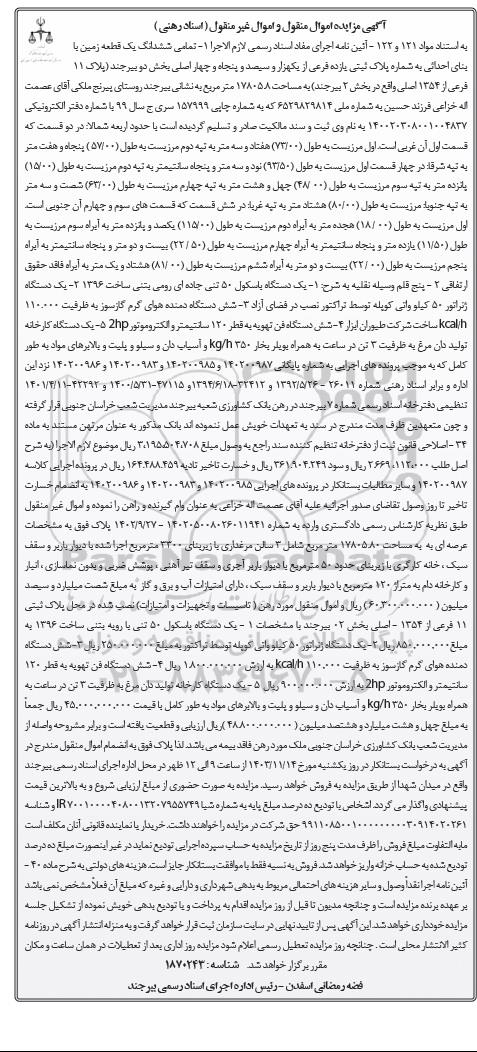 آگهی مزایده اموال منقول و اموال غیر منقول (اسناد رهنی)
به استناد مواد ۱۲۱ و ۱۲۲ - آئین نامه اجرای مفاد اسناد رسمی لازم الاجرا ۱- تمامی ششدانگ یک قطعه زمین با
بنای احداثی به شماره پلاک ثبتی یازده فرعی از یکهزار و سیصد و پنجاه و چهار اصلی بخش دو بیرجند (پلاک ۱۱
فرعی از ۱۳۵۴ اصلی واقع در بخش ۲ بیرجند) به مساحت ۱۷۸۰۵.۸ متر مربع به نشانی بیرجند روستای پیرنج ملکی آقای عصمت
اله خزاعی فرزند حسین به شماره ملی ۶۵۲۹۸۲۹۸۱۴ که به شماره چاپی ۱۵۷۹۹۹ سری ج سال ۹۹ با شماره دفتر الکترونیکی
۱۴۰۰۲۰۳۰۸۰۰۱۰۰۴۸۳۷ به نام وی ثبت و سند مالکیت صادر و تسلیم گردیده است با حدود اربعه شمالا: در دو قسمت که
قسمت اول آن غربی است. اول مرزیست به طول (۷۳/۰۰) هفتاد و سه متر به تپه دوم مرزیست به طول (۵۷/۰۰) پنجاه و هفت متر
به تپه شرقا: در چهار قسمت اول مرزیست به طول (۹۳/۵۰) نود و سه متر و پنجاه سانتیمتر به تپه دوم مرزیست به طول (۱۵/۰۰)
پانزده متر به تپه سوم مرزیست به طول (۴۸/۰۰) چهل و هشت متر به تپه چهارم مرزیست به طول (۶۳/۰۰) شصت و سه متر
به تپه جنوبا: مرزیست به طول (۸۰/۰۰) هشتاد متر به تپه غربا: در شش قسمت که قسمت های سوم و چهارم آن جنوبی است.
اول مرزیست به طول (۱۸/۰۰) هجده متر به آبراه دوم مرزیست به طول (۱۱۵/۰۰) یکصد و پانزده متر به آبراه سوم مرزیست به
طول (۱۱/۵۰) یازده متر و پنجاه سانتیمتر به آبراه چهارم مرزیست به طول (۲۲/۵۰) بیست و دو متر و پنجاه سانتیمتر به آبراه
پنجم مرزیست به طول (۲۲/۰۰) بیست و دو متر به آبراه ششم مرزیست به طول (۸۱/۰۰) هشتاد و یک متر به آبراه فاقد حقوق
ارتفاقی ۲ - پنج قلم وسیله نقلیه به شرح: ۱- یک دستگاه باسکول ۵۰ تنی جاده ای رومی بتنی ساخت ۱۳۹۶ ۲- یک دستگاه
ژنراتور ۵۰ کیلو واتی کوپله توسط تراکتور نصب در فضای آزاد ۳- شش دستگاه دمنده هوای گرم گازسوز به ظرفیت ۱۱۰.۰۰۰
kcal/h ساخت شرکت طیوران ابزار ۴- شش دستگاه فن تهویه به قطر ۱۲۰ سانتیمتر و الکتروموتور 2hp ۵- یک دستگاه کارخانه
تولید دان مرغ به ظرفیت ۳ تن در ساعت به همراه بویلر بخار ۳۵۰ kg/h و آسیاب دان و سیلو و پلیت و بالابرهای مواد به طور
کامل که به موجب پرونده های اجرایی به شماره بایگانی ۱۴۰۲۰۰۹۸۷ و ۱۴۰۲۰۰۹۸۵ و ۱۴۰۲۰۰۹۸۳ و ۱۴۰۲۰۰۹۸۶ نزد این
اداره و برابر اسناد رهنی شماره ۲۶۰۱۱ - ۱۳۹۲/۵/۲۶ و ۳۲۴۱۲-۱۳۹۴/۶/۱۸ و ۴۷۱۱۵-۱۴۰۰/۵/۳۱ و ۴۲۲۹۲-۱۴۰۱/۴/۱۱
تنظیمی دفترخانه اسناد رسمی شماره ۷ بیرجند در رهن بانک کشاورزی شعبه بیرجند مدیریت شعب خراسان جنوبی قرار گرفته
و چون متعهدین ظرف مدت مندرج در سند به تعهدات خویش عمل ننموده اند بانک مذکور به عنوان مرتهن مستند به ماده
۳۴ - اصلاحی قانون ثبت از دفترخانه تنظیم کننده سند راجع به وصول مبلغ ۳.۱۹۵.۵۰۴.۷۰۸ ریال موضوع لازم الاجرا (به شرح
اصل طلب ۲.۶۶۹.۱۱۲.۰۰۰ ریال و سود ۳۶۱.۹۰۴.۲۴۹ ریال و خسارت تاخیر تادیه ۱۶۴.۴۸۸.۴۵۹ ریال در پرونده اجرایی کلاسه
۱۴۰۲۰۰۹۸۷ و سایر مطالبات بستانکار در پرونده های اجرایی ۱۴۰۲۰۰۹۸۵ و ۱۴۰۲۰۰۹۸۳ و ۱۴۰۲۰۰۹۸۶ به انضمام خسارت
تاخیر تا روز وصول تقاضای صدور اجرائیه علیه آقای عصمت اله خزاعی به عنوان وام گیرنده و راهن را نموده و اموال غیر منقول
طبق نظریه کارشناس رسمی دادگستری وارده به شماره ۱۴۰۲۰۵۰۰۸۰۲۶۰۱۱۹۴۱ - ۱۴۰۲/۹/۲۷ پلاک فوق به مشخصات
عرصه ای به به مساحت ۱۷۸۰۵.۸۰ متر مربع شامل ۳ سالن مرغداری با زیربنای ۳۳۰۰ مترمربع اجرا شده با دیوار باربر و سقف
سبک ، خانه کارگری با زیربنای حدود ۵۰ مترمربع با دیوار باربر آجری و سقف تیر آهنی ، پوشش ضربی و بدون نماسازی ، انبار
و کارخانه دام به متراژ ۱۲۰ مترمربع با دیوار باربر و سقف سبک ، دارای امتیازات آب و برق و گاز به مبلغ شصت میلیارد و سیصد
میلیون (۶۰.۳۰۰.۰۰۰.۰۰۰) ریال و اموال منقول مورد رهن (تاسیسات و تجهیزات و امتیازات) نصب شده در محل پلاک ثبتی
۱۱ فرعی از ۱۳۵۴ - اصلی بخش ۰۲ بیرجند با مشخصات ۱ - یک دستگاه باسکول ۵۰ تنی با رویه بتنی ساخت ۱۳۹۶ به
مبلغ ۸۵۰.۰۰۰.۰۰۰ ریال ۲- یک دستگاه ژنراتور ۵۰ کیلو واتی کوپله توسط تراکتور به مبلغ ۲۵۰.۰۰۰.۰۰۰ ریال ۳- شش دستگاه
دمنده هوای گرم گازسوز به ظرفیت ۱۱۰.۰۰۰ kcal/h به ارزش ۱.۸۰۰.۰۰۰.۰۰۰ ریال ۴- شش دستگاه فن تهویه به قطر ۱۲۰
سانتیمتر و الکتروموتور 2hp به ارزش ۹۰۰.۰۰۰.۰۰۰ ریال ۵ - یک دستگاه کارخانه تولید دان مرغ به ظرفیت ۳ تن در ساعت به
همراه بویلر بخار ۳۵۰ kg/h و آسیاب دان و سیلو و پلیت و بالابرهای مواد به طور کامل با قیمت ۴۵.۰۰۰.۰۰۰.۰۰۰ ریال جمعاً
به مبلغ چهل و هشت میلیارد و هشتصد میلیون (۴۸.۸۰۰.۰۰۰.۰۰۰) ریال ارزیابی و قطعیت یافته است و برابر مشروحه واصله از
مدیریت شعب بانک کشاورزی خراسان جنوبی ملک مورد رهن فاقد بیمه می باشد. لذا پلاک فوق به انضمام اموال منقول مندرج در
آگهی به درخواست بستانکار در روز یکشنبه مورخ ۱۴۰۳/۱۱/۱۴ از ساعت ۹ الی ۱۲ ظهر در محل اداره اجرای اسناد رسمی بیرجند
واقع در میدان شهدا از طریق مزایده به فروش خواهد رسید. مزایده به صورت حضوری از مبلغ ارزیابی شروع و به بالاترین قیمت
پیشنهادی واگذار می گردد. اشخاص با تودیع ده درصد مبلغ پایه به شماره شبا IR۷۰۰۱۰۰۰۰۴۰۸۰۰۱۳۲۰۷۹۵۵۷۴۹ و شناسه
۹۹۱۱۰۸۵۰۰۱۰۰۰۰۰۰۰۰۰۳۰۹۱۴۰۲۰۲۶۱ حق شرکت در مزایده را خواهند داشت. خریدار یا نماینده قانونی آنان مکلف است
مابه التفاوت مبلغ فروش را ظرف مدت پنج روز از تاریخ مزایده به حساب سپرده اجرایی تودیع نماید در غیر اینصورت مبلغ ده درصد
تودیع شده به حساب خزانه واریز خواهد شد. فروش به نسیه فقط با موافقت بستانکار جایز است. هزینه های دولتی به شرح ماده ۴۰ -
آئین نامه اجرا نقداً وصول و سایر هزینه های احتمالی مربوط به بدهی شهرداری و دارایی و غیره که مبلغ آن فعلاً مشخص نمی باشد
بر عهده برنده مزایده است و چنانچه مدیون تا قبل از روز مزایده اقدام به پرداخت و یا تودیع بدهی خویش نموده از تشکیل جلسه
مزایده خودداری خواهد شد. این آگهی پس از تایید نهایی در سایت سازمان ثبت قرار خواهد گرفت و به منزله انتشار آگهی در روزنامه
کثیر الانتشار محلی است . چنانچه روز مزایده تعطیل رسمی اعلام شود مزایده روز اداری بعد از تعطیلات در همان ساعت و مکان
مقرر برگزار خواهد شد. شناسه : ۱۸۷۰۲۴۳
فضه رمضانی اسفدن - رئیس اداره اجرای اسناد رسمی بیرجند